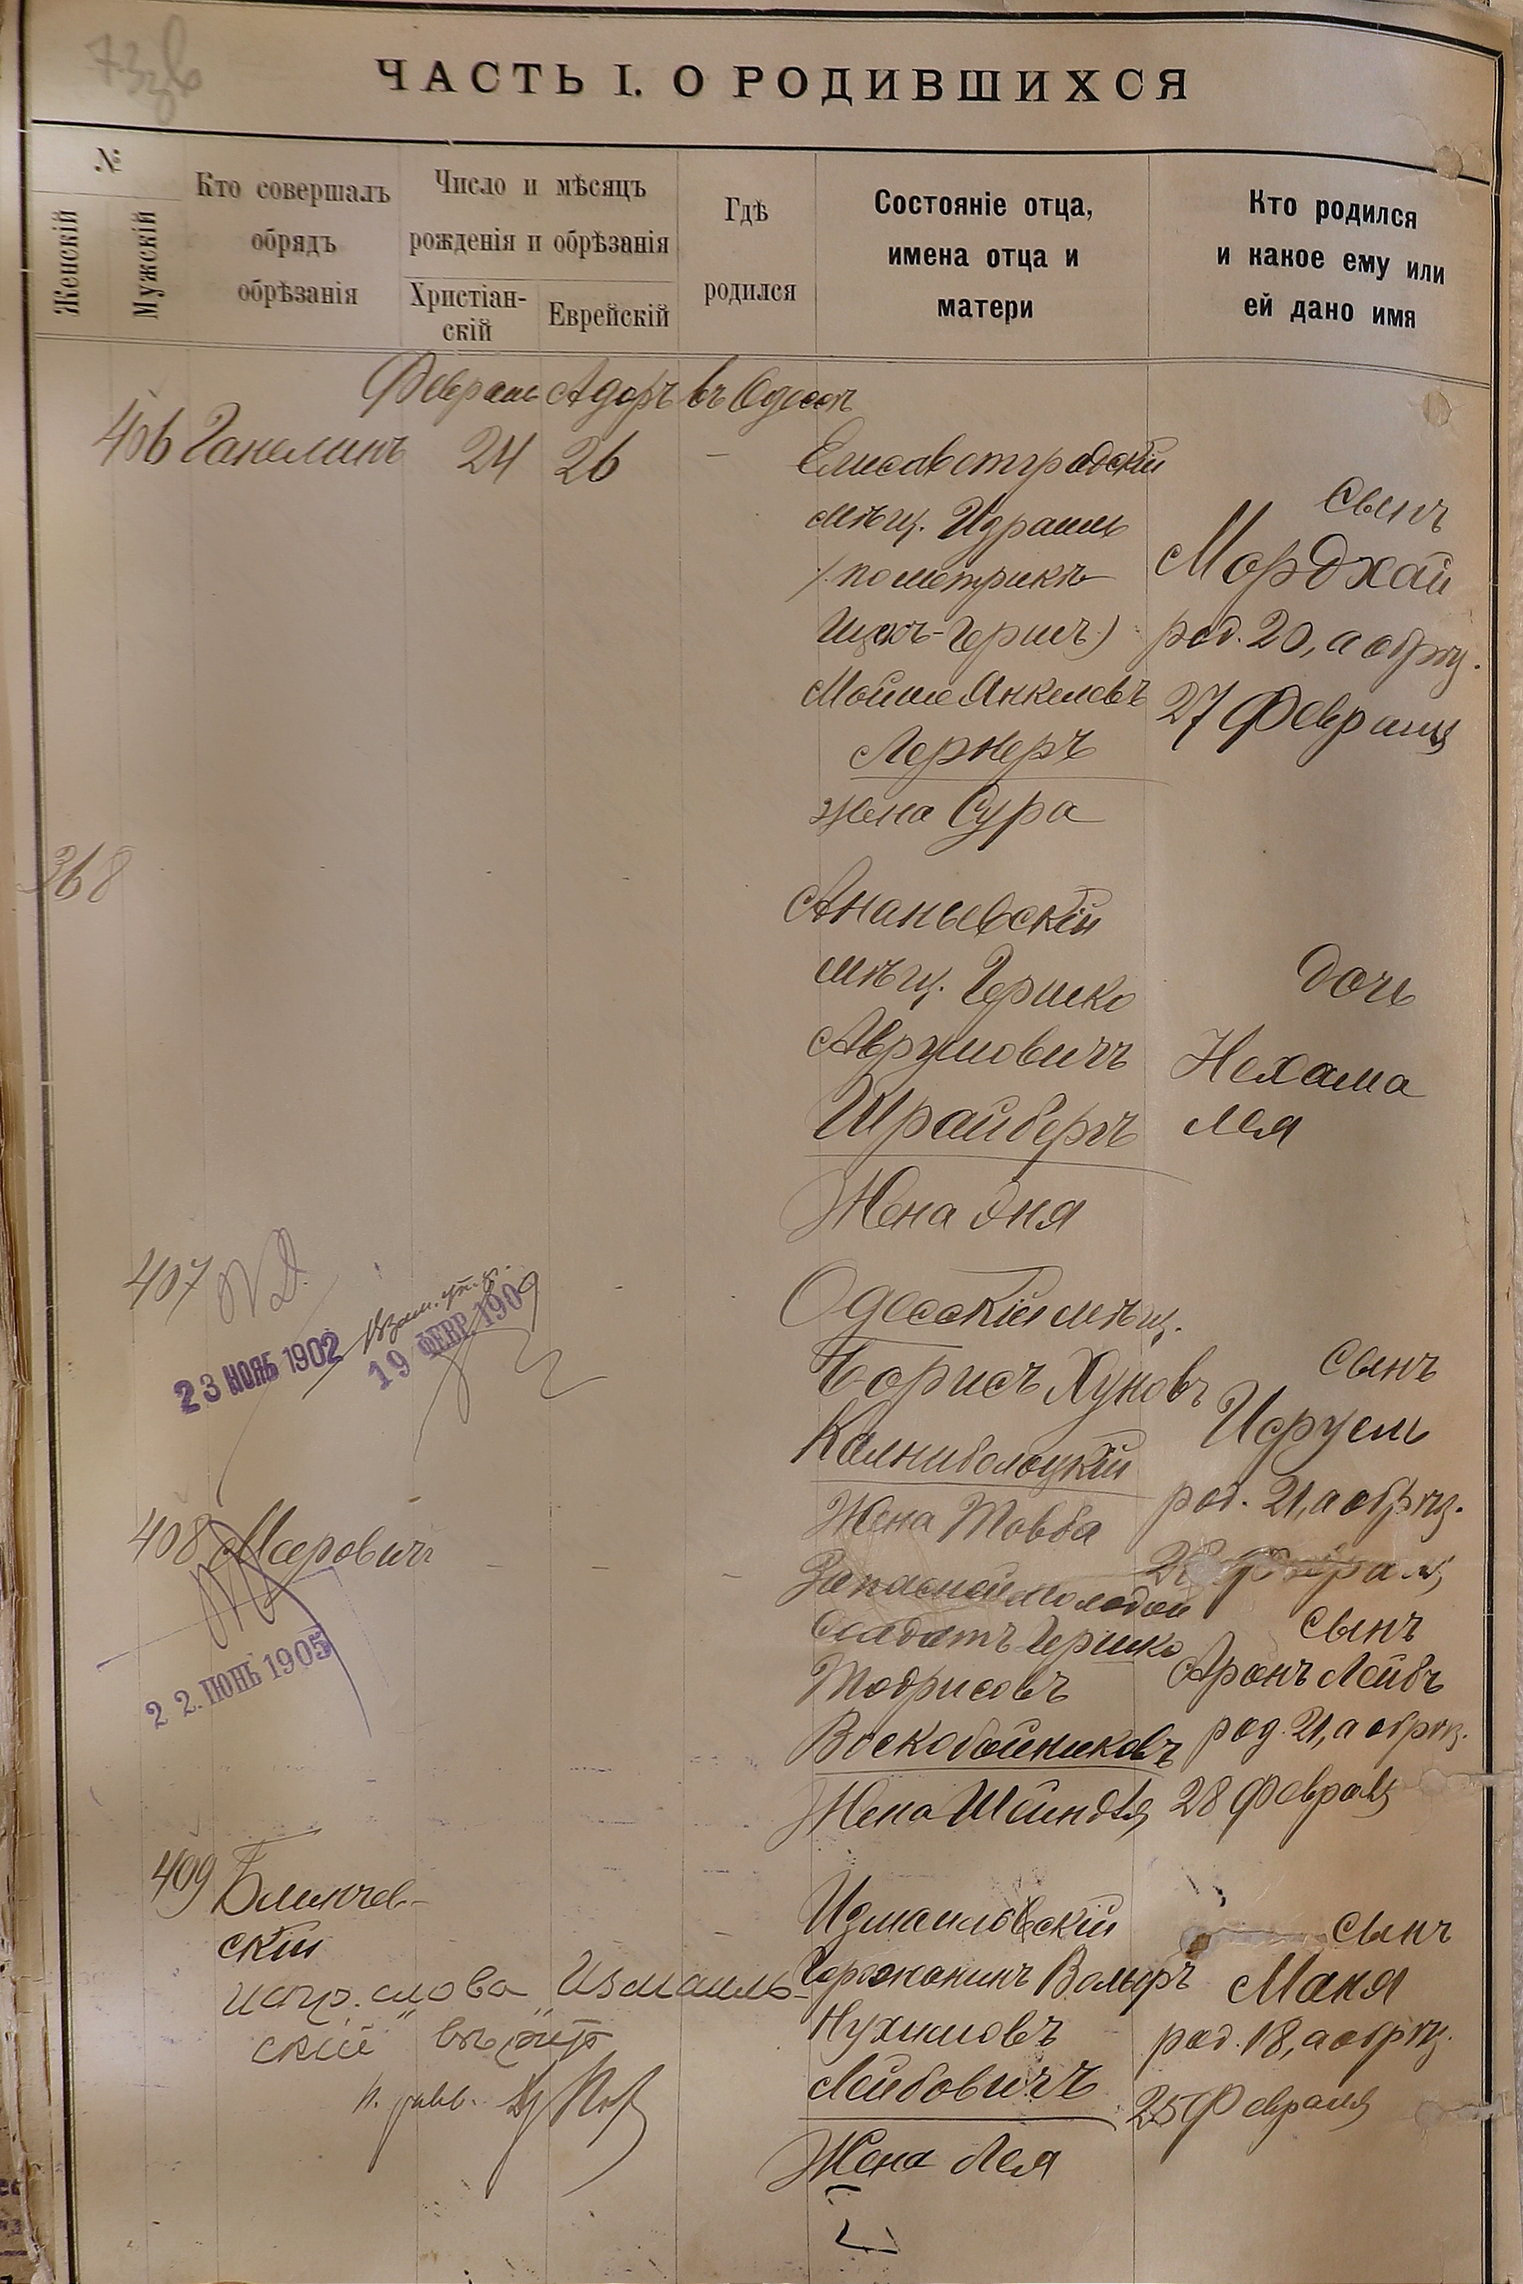 ЧАСТЬ I. О РОДИВШИХСЯ
№
Женскій
Мужскій
Кто совершалъ
обрядъ
обрѣзанія
Число и мѣсяцъ
рожденія и обрѣзанія
Христіан-
скій
Еврейскій
Гдѣ
родился
Состояніе отца,
имена отца и
матери
Кто родился
и какое ему или
ей дано имя
Февраль Адоръ въ Одессѣ
406 Ганелинъ 24 26 –
Елисаветградскій
мѣщ. Израиль
(по метрикѣ
Ицкъ-Гершъ)
Мойше Янкелевъ
Лернеръ
жена Сура
сынъ
Мордхай
род. 20, а обрѣз.
27 Февраля
368
Ананьевскій
мѣщ. Гершко
Аврумовичъ
Шрайберъ
Жена Эня
дочь
Нехама
Лея
407
23 НОЯБ 1902
19 ФЕВР 1909
Одесскій мѣщ.
Борисъ Хуновъ
Калниболоцкій
Жена Товба
сынъ
Исруель
род. 21, а обрѣз.
28 Февраля
408 Меерович
22. ІЮНЬ 1905
Запасной молодой
солдатъ Гершко
Тодрисовъ
Воскобойниковъ
Жена Шейндля
сынъ
Аронъ Лейбъ
род. 21, а обрѣз.
28 Февраля
409
скій
испр. слова „Измаиль-
скій" вѣрно
Измаиловскій
горожанинъ Вольфъ
Нухимовъ
Лейбовичъ
Жена Лея
сынъ
Маня
род. 18, а обрѣз.
25 Февраля